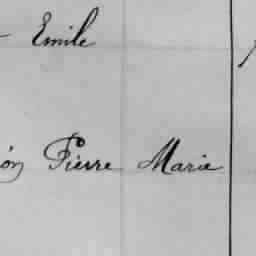 Emile
Pierre Marie